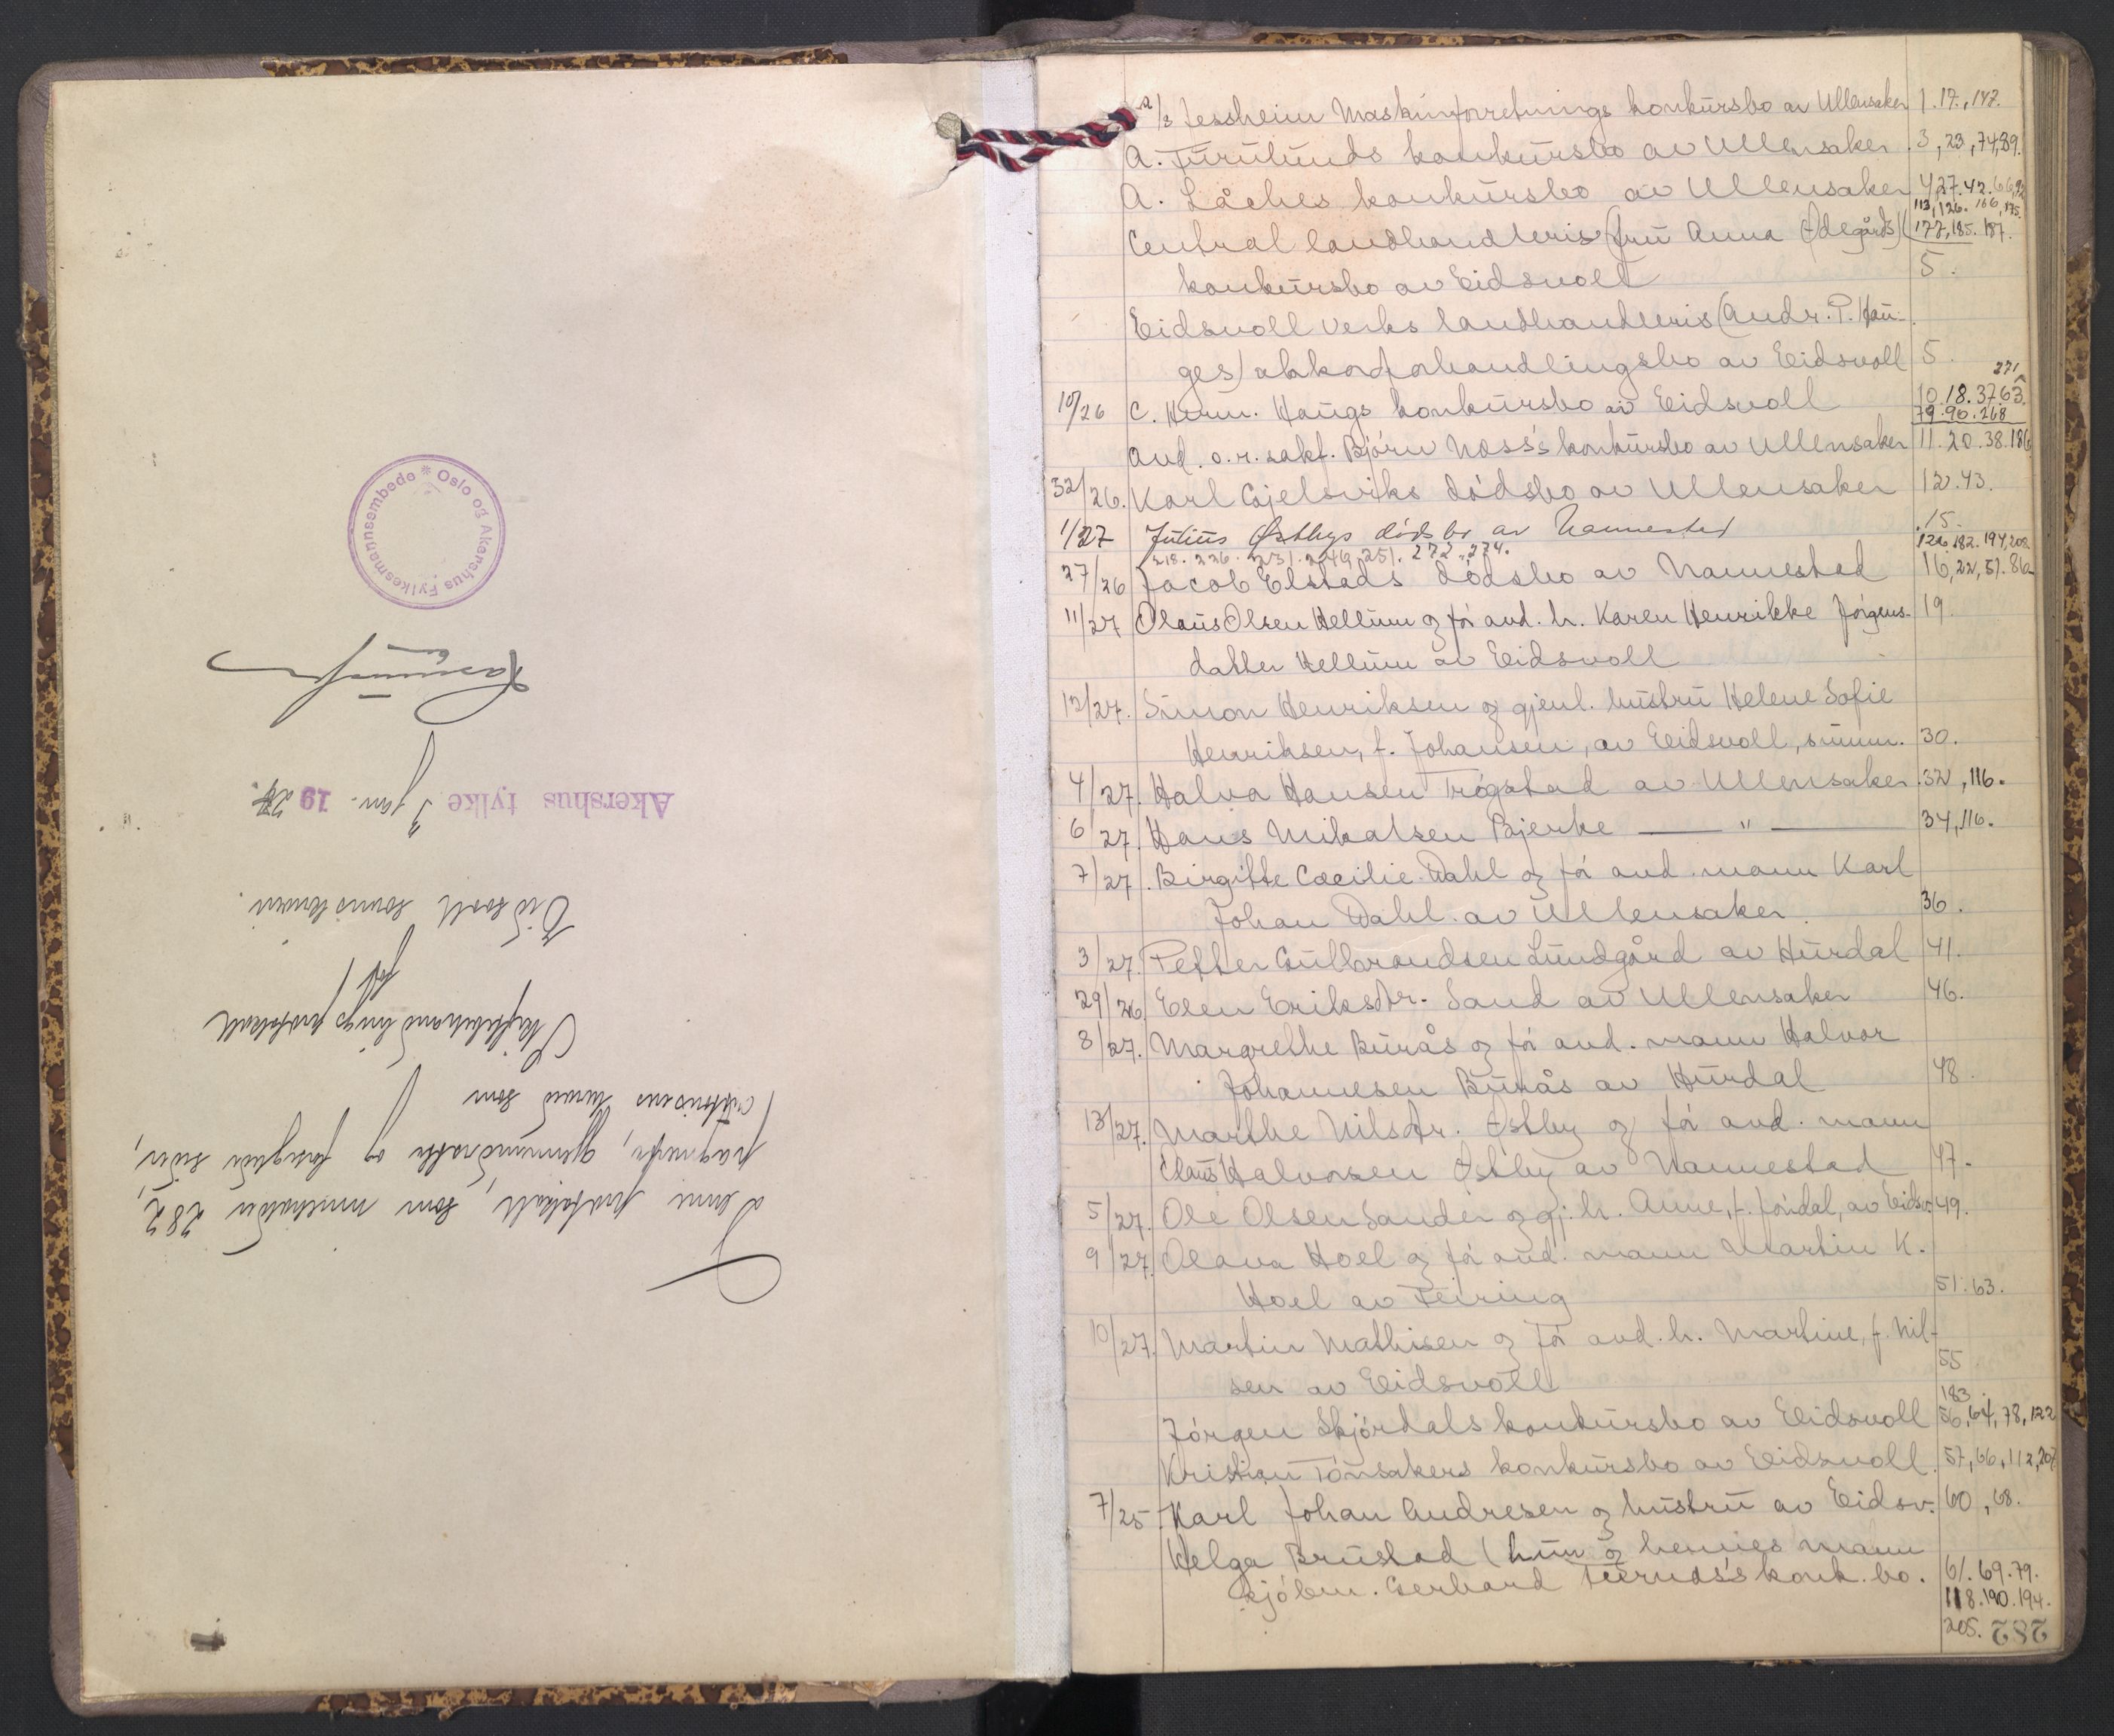 Denne protokoll, som inneholder 282
paginerte, gjennemdratte og forseglede sider,
autoriseres herved som
Skiftebehandlingsprotokoll
for
Eidsvoll sorenskriveri.
Akershus fylke, 3 jan. 1927.
Oslo og Akershus Fylkesmannsembede *
a/3 Jessheim Maskinforretnings konkursbo av Ullensaker 1.17.,147.
A. Furulunds konkursbo av Ullensaker 3, 23, 74,89.
A. Låches konkursbo av Ullensaker 4,27.42.66,92
113,126.166,175.
Central landhandleris (fru Anna Ødegårds) 177,185.187.
konkursbo av Eidsvoll 5.
Eidsvoll Verks landhandleris (Andr. P. Hau-
ges) akkordforhandlingsbo av Eidsvoll 5.
271
10/26 C. Herm. Haugs konkursbo av Eidsvoll 10.18.37.63.
79.90.268
And. o.r.sakf. Björn Næss's konkursbo av Ullensaker 11.20.38.186
32/26. Karl Gjelsviks dödsbo av Ullensaker 12.43.
1/27 Julius Østbys dödsbo av Nannestad .15.
218.226.231.246,251.272,274. 126.182.194,208
27/26 Jacob Elstads dödsbo av Nannestad 16,22,51.86
11/27 Olaus Olsen Hellum og för avd. h. Karen Henrikke Jörgens- 19.
datter Hellum av Eidsvoll
12/27. Simon Henriksen og gjenl. hustru Helene Sofie
Henriksen, f. Johansen, av Eidsvoll, summ. 30.
4/27. Halvor Hansen Trögstad av Ullensaker 32,116.
6/27. Hans Mikalsen Bjerke — " — 34,116.
7/27. Birgitte Cæcilie Dahl og för avd. mann Karl
Johan Dahl av Ullensaker. 36.
3/27. Petter Gulbrandsen Lundgård av Hurdal 41.
29/26. Elen Eriksdtr. Sand av Ullensaker 46.
8/27. Margrethe Burås og för avd. mann Halvor
Johannesen Burås av Hurdal 48.
13/27. Marthe Nilsdtr. Østby og för avd. mann
Claus Halvorsen Østby av Nannestad 47.
5/27. Ole Olsen Sander og gj. h. Anne, f. Jöndal, av Eidsv. 49.
9/27. Olava Hoel og för avd. mann Martin K.
Hoel av Feiring 51.63.
10/27. Martin Mathisen og för avd. h. Martine, f. Nil-
sen av Eidsvoll 55
183
Jörgen Skjördals konkursbo av Eidsvoll 56,64,78,122
Kristian Tönsakers konkursbo av Eidsvoll. 57,66,112,207
7/25. Karl Johan Andresen og hustru av Eidsv. 60,68.
Helga Brustad (hun og hennes mann
kjöbm. Gerhard konk.bo. 61.69.79.
118.190.194.
205. 282